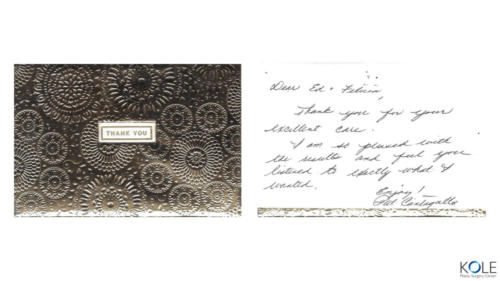 THANK YOU
Dear Ed + Felicia,
Thank you for your
excellent care.
I am so pleased with
the results and feel you
listened to exactly what I
wanted.
Enjoy!
KOLE
Plastic Surgery Center